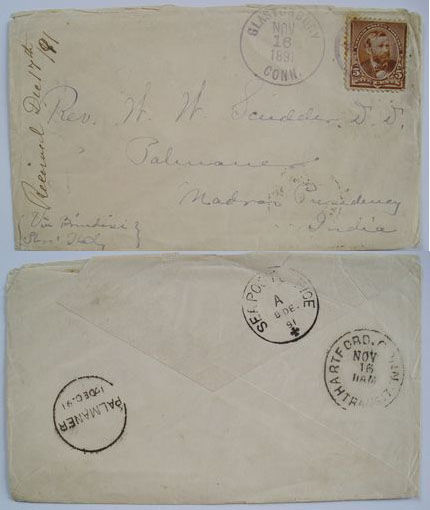 Received Dec 17th /91
GLASTONBURY
NOV
16
1891
CONN.
Rev. W. W. Scudder. D. D.
Palmaner
Madras Presidency
India
(Via Brindisi
Italy
SEA POST OFFICE
A
DE.
91
HARTFORD, CONN.
NOV
16
11AM
TRANSIT
PALMANER
DEC. 91